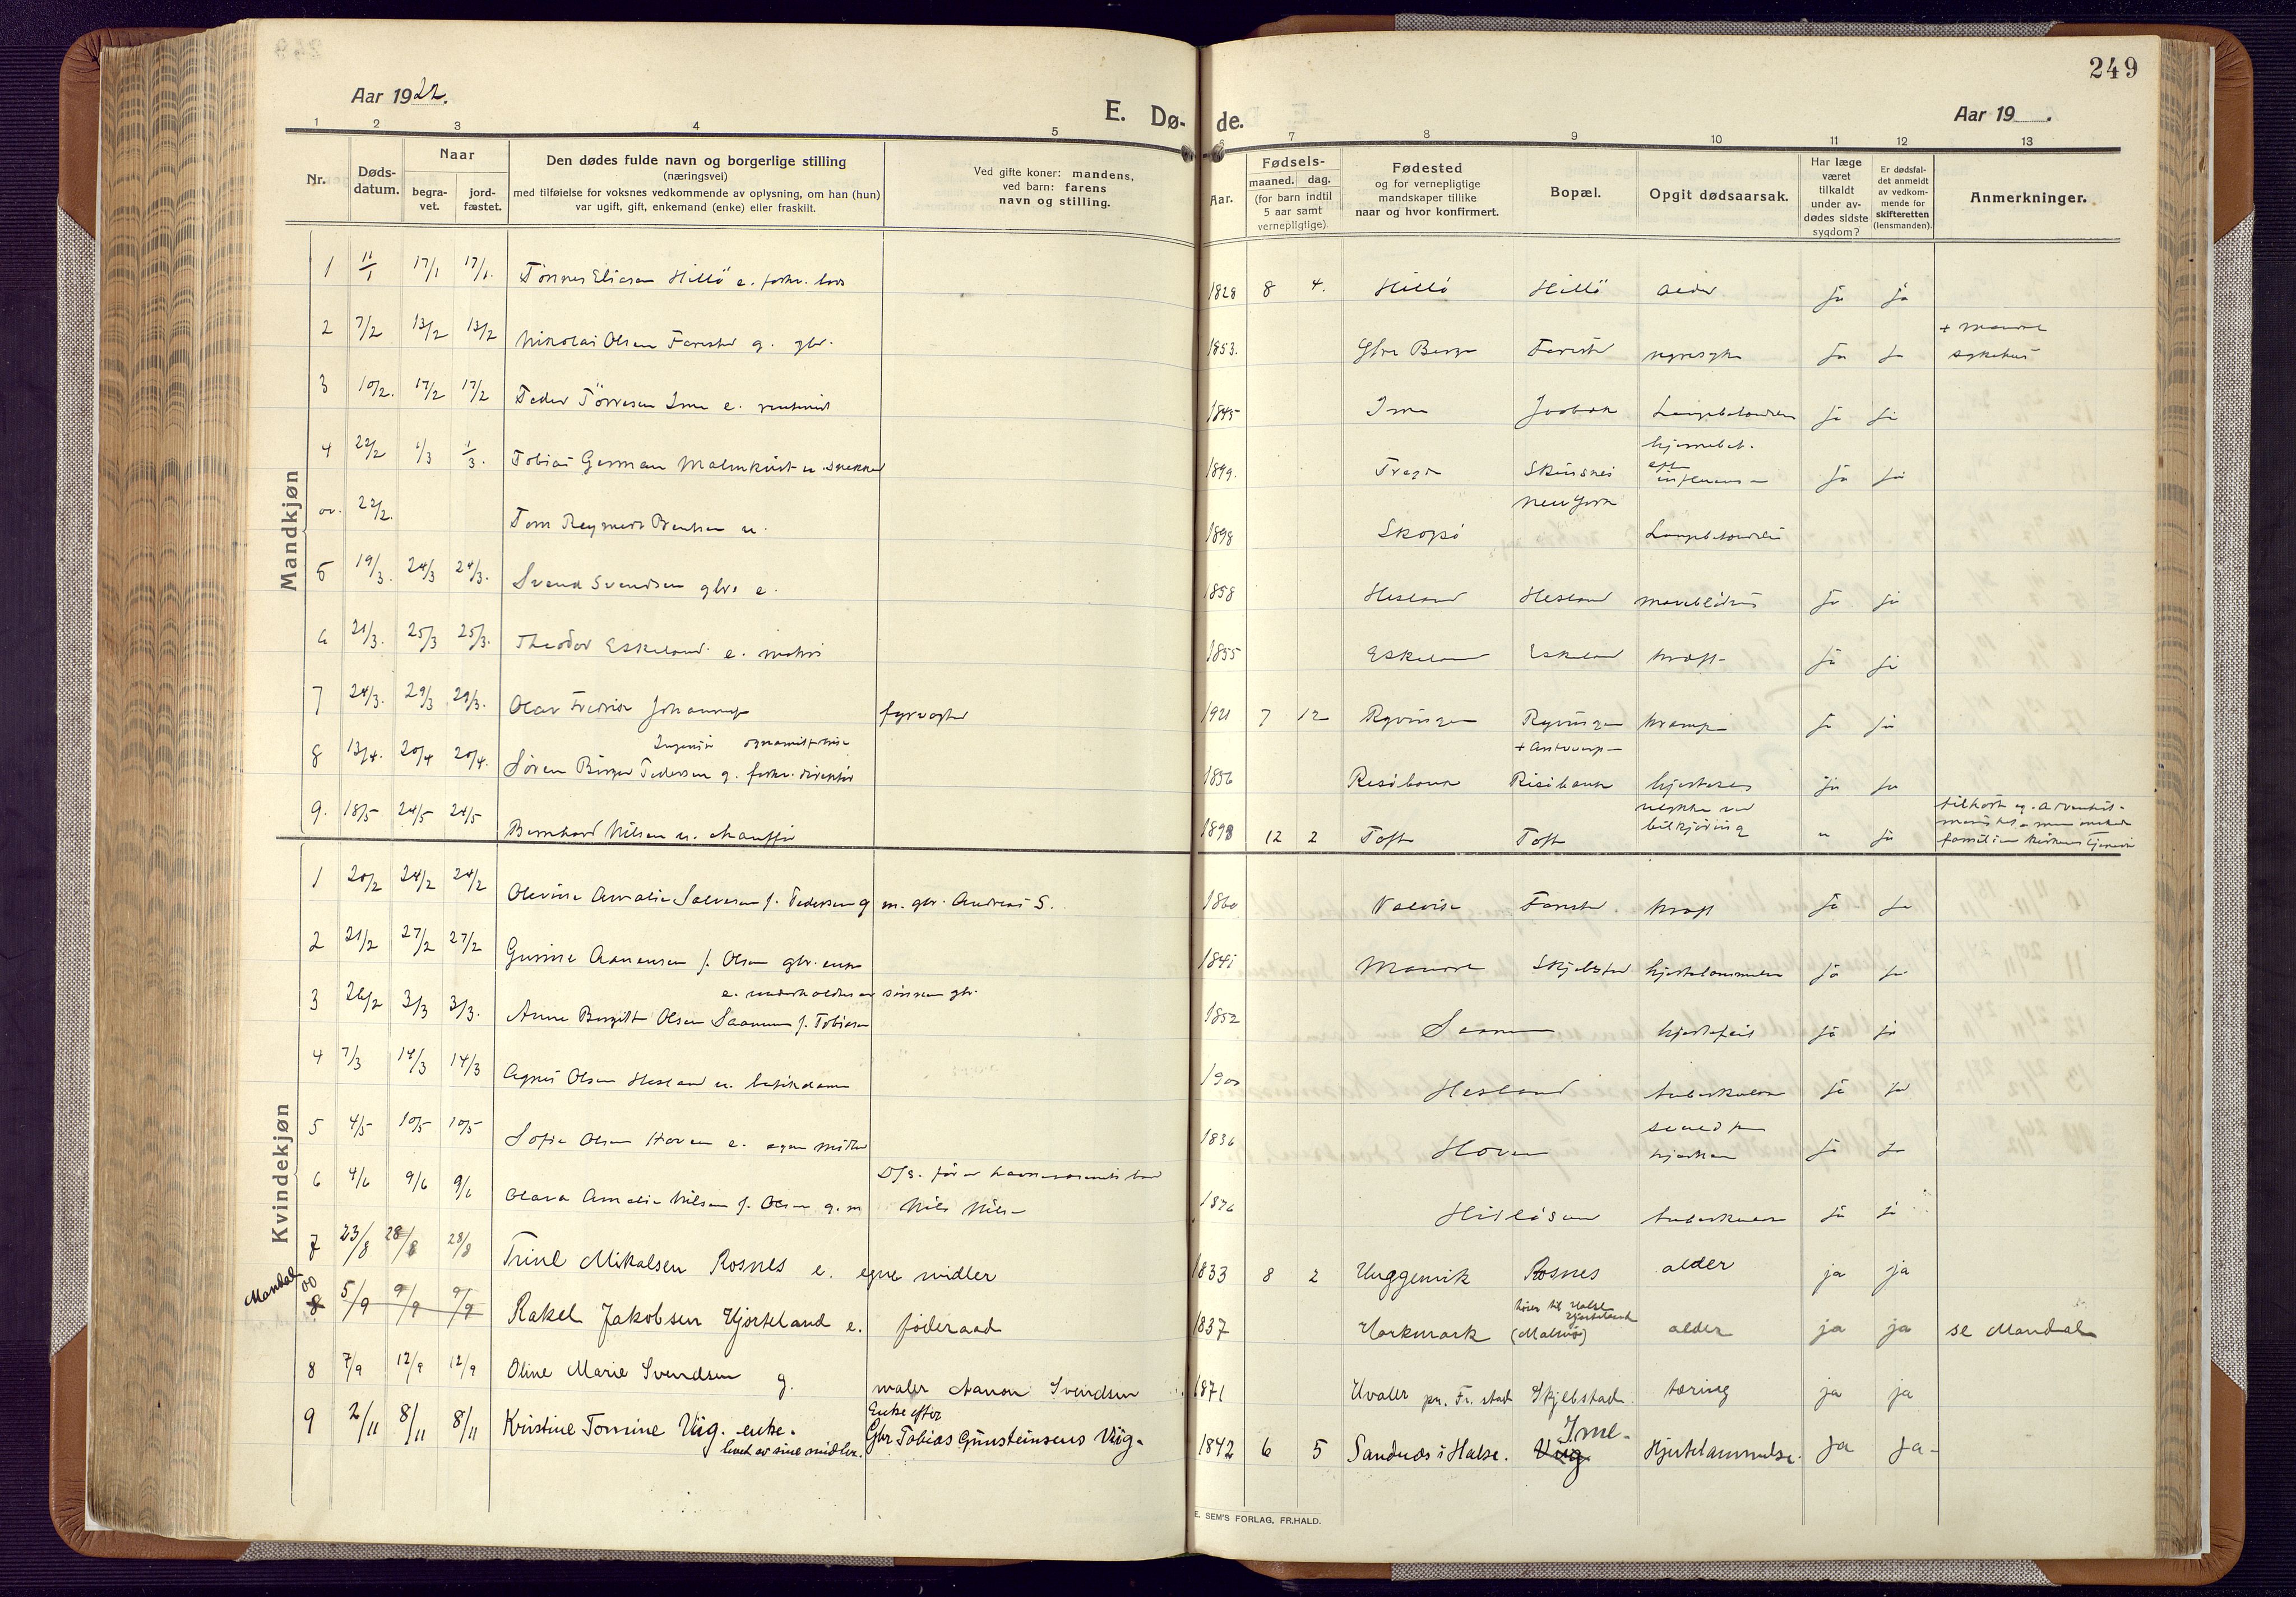 249
Aar 1922.
E. Dø- de.
Aar 19 .
1 2 3 4 5 6 7 8 9 10 11 12 13
Nr.
Døds-datum.
Naar
begra-vet.
jord-fæstet.
Den dødes fulde navn og borgerlige stilling
(næringsvei)
med tilføielse for voksnes vedkommende av oplysning, om han (hun)
var ugift, gift, enkemand (enke) eller fraskilt.
Ved gifte koner: mandens,
ved barn: farens
navn og stilling.
Aar.
Fødsels-
maaned. dag.
(for barn indtil
5 aar samt
vernepligtige)
Fødested
og for vernepligtige
mandskaper tillike
naar og hvor konfirmert.
Bopæl.
Opgit dødsaarsak.
Har læge
været
tilkaldt
under av-
dødes sidste
sygdom?
Er dødsfal-
det anmeldt
av vedkom-
mende for
skifteretten
(lensmanden).
Anmerkninger.
Mandkjøn
1 11/1 17/1 17/1. Tönnes Eliasen Hillö e. forhv. lods 1828 8 4. Hillö Hillö alder ja ja
2 7/2 13/2 13/2 Nikolai Olsen Farestad g. gbr. 1853. Ja ja + Mandal sykehus
3 10/2. 17/2 17/2 Peder Törresen Ime e. 1845 Ime Lungebetændelse ja ja
4 22/2 1/3 1/3. Tobias German Malmkvist u. snekker 1899. Tregde Skinsnes hjernebet. efter influensa ja ja
22/2. Tom Reymert Berntsen u. 1898 Skogsö New York Lungebetændelse
5 19/3. 24/3 24/3. Svend Svendsen gbr. e. 1858 Hesland Hesland maveblödning ja ja
6 21/3. 25/3 25/3. Theodor Eskeland e. 1855 Eskeland Eskeland kræft ja ja
7 24/3. 29/3 29/3. Olav Fredrik Johannesen fyrvogter 1921 7 12 Ryvingen Ryvingen krampe ja ja
8 13/4. 20/4 20/4. Sören Birger Pedersen g. forhv. direktör 1856 Risöbank Risöbank + Antwerpen ja ja
9. 18/5 24/5 24/5 Bernhard Nilsen u. chaufför 1898 12 2 Toft Toft ulykke ved bilkjöring u ja
Kvindekjøn
1 20/2 24/2 24/2 Olevine Amalie Salvesen f. Pedersen g m. gbr. Andreas S. 1860 Valvik Farestad kræft ja ja
2 21/2 27/2 27/2 Gurine Aanensen f. Olsen gbr. enke 1841 Mandal Skjebstad hjertelammelse ja ja
3 26/2 3/3 3/3. Anne Bergitte Olsen Saanum f. Tobiasen
e. underholdtes av sönnen gbr. 1852 Saanum hjertefeil ja ja
4 7/3 14/3 14/3 Agnes Olsen Hesland u. butikdame 1900 Hesland tuberkulose ja ja
5 4/5 10/5 10/5 Sofie Olsen Hoven e. egne midler 1836 Hoven ja ja
6 4/6 9/6 9/6 Olava Amalie Nilsen f. Olsen g. m Nils Nilsen 1876 tuberkulose ja ja
7 23/8 28/8 28/8 Trine Mikalsen Rosnes e. egne midler 1833 8 2 Uuggenvik Rosnes alder ja ja
Mandal 00 8 5/9 9/9 9/9 Rakel Jakobsen Hjorteland e. föderaad 1837 Harkmark hörer til Halse Hjorteland (Malmö) alder ja ja se Mandal
8 7/9 12/9 12/9 Oline Marie Svendsen g. maler Aanon Svendsen 1871 Hvaler pr. Fr. stad Skjebstad tæring ja ja
9 2/11 8/11 8/11 Kristine Tomine Viig. enke. levet av sine midler. Enke efter Gbr Tobias Gunsteinsens Viig. 1842 6 5 Sandnes i Halse. Viig Ime. Hjertelammelse. ja ja
E. SEM'S FORLAG, FR.HALD.